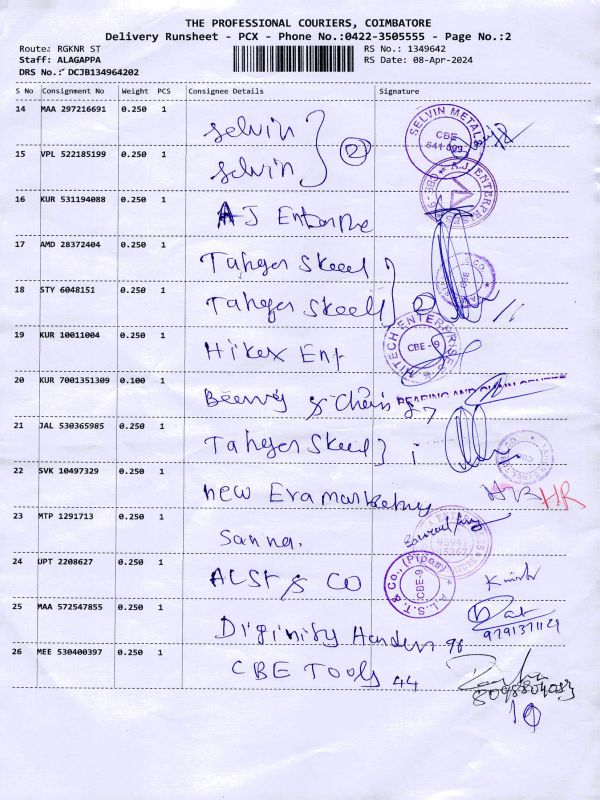 THE PROFESSIONAL COURIERS, COIMBATORE
Delivery Runsheet - PCX - Phone No.:0422-3505555 - Page No.:2
Route: RGKNR ST RS No.: 1349642
Staff: ALAGAPPA RS Date: 08-Apr-2024
DRS No.: DCJB134964202
S No Consignment No Weight PCS Consignee Details Signature
14 MAA 297216691 0.250 1 selvin SELVIN METALS CBE
15 VPL 522185199 0.250 1 selvin 2 A.J. ENTERPRISES CBE-9
16 KUR 531194088 0.250 1 AJ Enterprise
17 AMD 28372404 0.250 1 CBE
18 STY 6048151 0.250 1 2
19 KUR 10011004 0.250 1 Hitex Ent HITECH ENTERPRISES CBE-9
20 KUR 7001351309 0.100 1 BEARING AND CHAIN
21 JAL 530365985 0.250 1
22 SVK 10497329 0.250 1 new Era marketing HR
23 MTP 1291713 0.250 1 Sanna.
24 UPT 2208627 0.250 1 ALST & CO A.L.S.T. & Co., (Pipes) CBE-9
25 MAA 572547855 0.250 1
26 MEE 530400397 0.250 1 CBE Tools 44
10